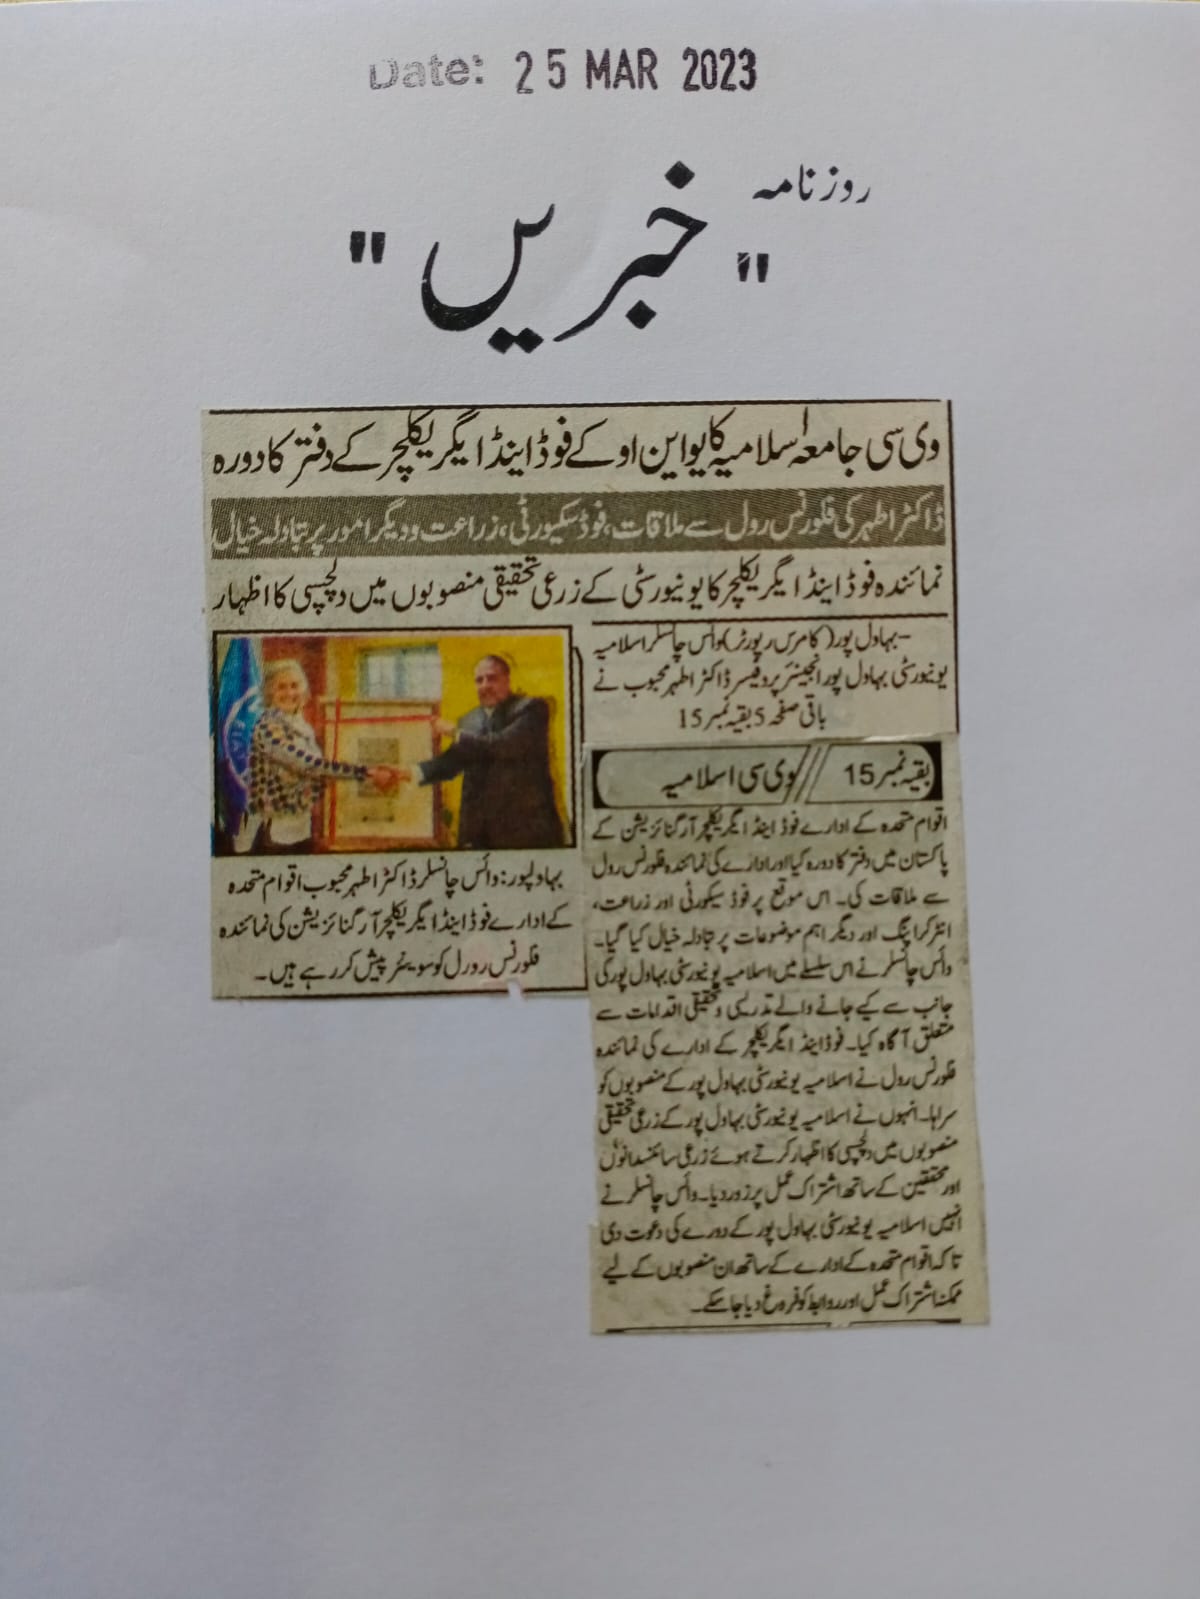 Date: 25 MAR 2023
روزنامہ
"خبریں"
وی سی جامعہ اسلامیہ کا یو این او کے فوڈ اینڈ ایگریکلچر کے دفتر کا دورہ
ڈاکٹر اطہر کی فلورنس رول سے ملاقات، فوڈ سکیورٹی، زراعت و دیگر امور پر تبادلہ خیال
نمائندہ فوڈ اینڈ ایگریکلچر کا یونیورسٹی کے زرعی تحقیقی منصوبوں میں دلچسپی کا اظہار
بہاول پور (کامرس رپورٹر) وائس چانسلر اسلامیہ
یونیورسٹی بہاول پور انجینئر پروفیسر ڈاکٹر اطہر محبوب نے
باقی صفحہ 5 بقیہ نمبر 15
بقیہ نمبر 15 // وی سی اسلامیہ
اقوام متحدہ کے ادارے فوڈ اینڈ ایگریکلچر آرگنائزیشن کے
پاکستان میں دفتر کا دورہ کیا اور ادارے کی نمائندہ فلورنس رول
سے ملاقات کی۔ اس موقع پر فوڈ سیکورٹی اور زراعت،
انٹرکراپنگ اور دیگر اہم موضوعات پر تبادلہ خیال کیا گیا۔
وائس چانسلر نے اس سلسلے میں اسلامیہ یونیورسٹی بہاول پور کی
جانب سے کیے جانے والے تدریسی و تحقیقی اقدامات سے
متعلق آگاہ کیا۔ فوڈ اینڈ ایگریکلچر کے ادارے کی نمائندہ
فلورنس رول نے اسلامیہ یونیورسٹی بہاول پور کے منصوبوں کو
سراہا۔ انہوں نے اسلامیہ یونیورسٹی بہاول پور کے زرعی تحقیقی
منصوبوں میں دلچسپی کا اظہار کرتے ہوئے زرعی سائنسدانوں
اور محققین کے ساتھ اشتراک عمل پر زور دیا۔ وائس چانسلر نے
انہیں اسلامیہ یونیورسٹی بہاول پور کے دورے کی دعوت دی
تاکہ اقوام متحدہ کے ادارے کے ساتھ ان منصوبوں کے لیے
ممکنہ اشتراک عمل اور روابط کو فروغ دیا جاسکے۔
بہاولپور: وائس چانسلر ڈاکٹر اطہر محبوب اقوام متحدہ
کے ادارے فوڈ اینڈ ایگریکلچر آرگنائزیشن کی نمائندہ
فلورنس رورل کو سوینئر پیش کر رہے ہیں۔